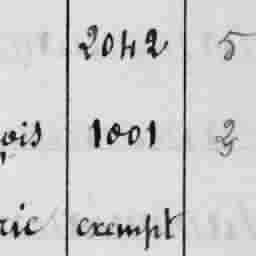 2042 5
ois 1001
ric exempt